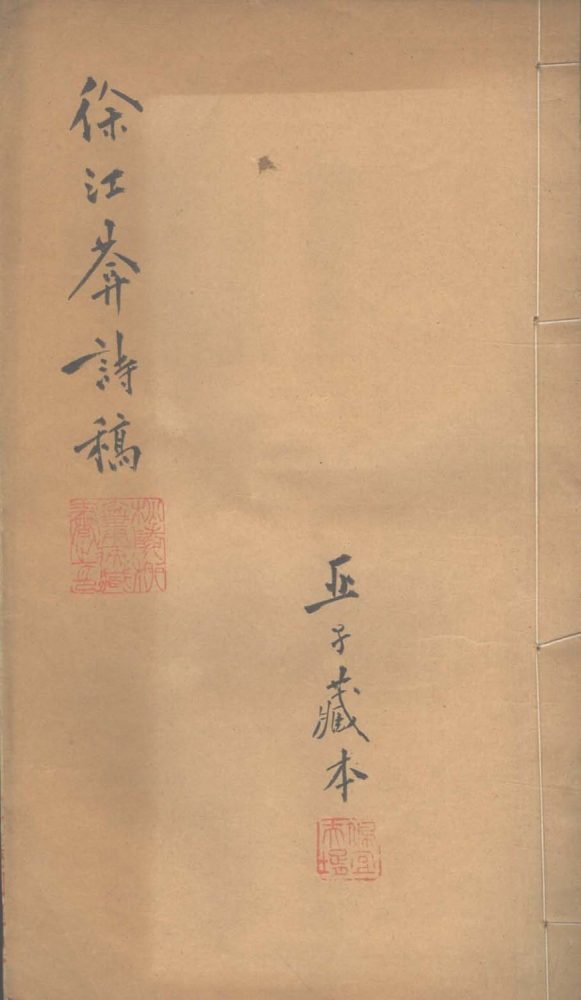 徐江菴詩稿
亞子藏本